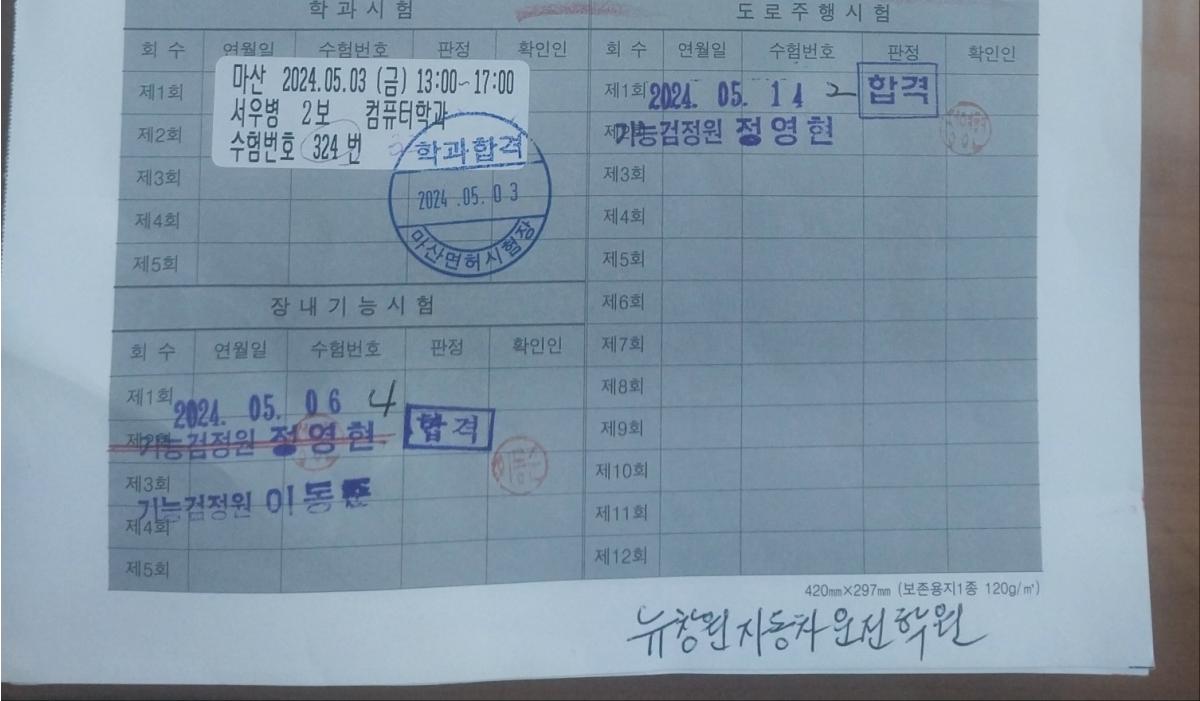 학과시험
회 수 연월일 수험번호 판정 확인인
마산 2024.05.03 (금) 13:00~17:00
서우병 2보 컴퓨터학과
수험번호 324 번
제1회
제2회
제3회
제4회
제5회
학과합격
2024.05.03
마산면허시험장
장내기능시험
회 수 연월일 수험번호 판정 확인인
제1회
2024. 05. 06 4
제2회
기능검정원 정영현
합격
제3회
기능검정원 이동
제4회
제5회
도로주행시험
회 수 연월일 수험번호 판정 확인인
제1회 2024. 05. 14 2 합격
기능검정원 정영현
제3회
제4회
제5회
제6회
제7회
제8회
제9회
제10회
제11회
제12회
420㎜×297㎜ (보존용지1종 120g/㎡)
뉴창원자동차운전학원